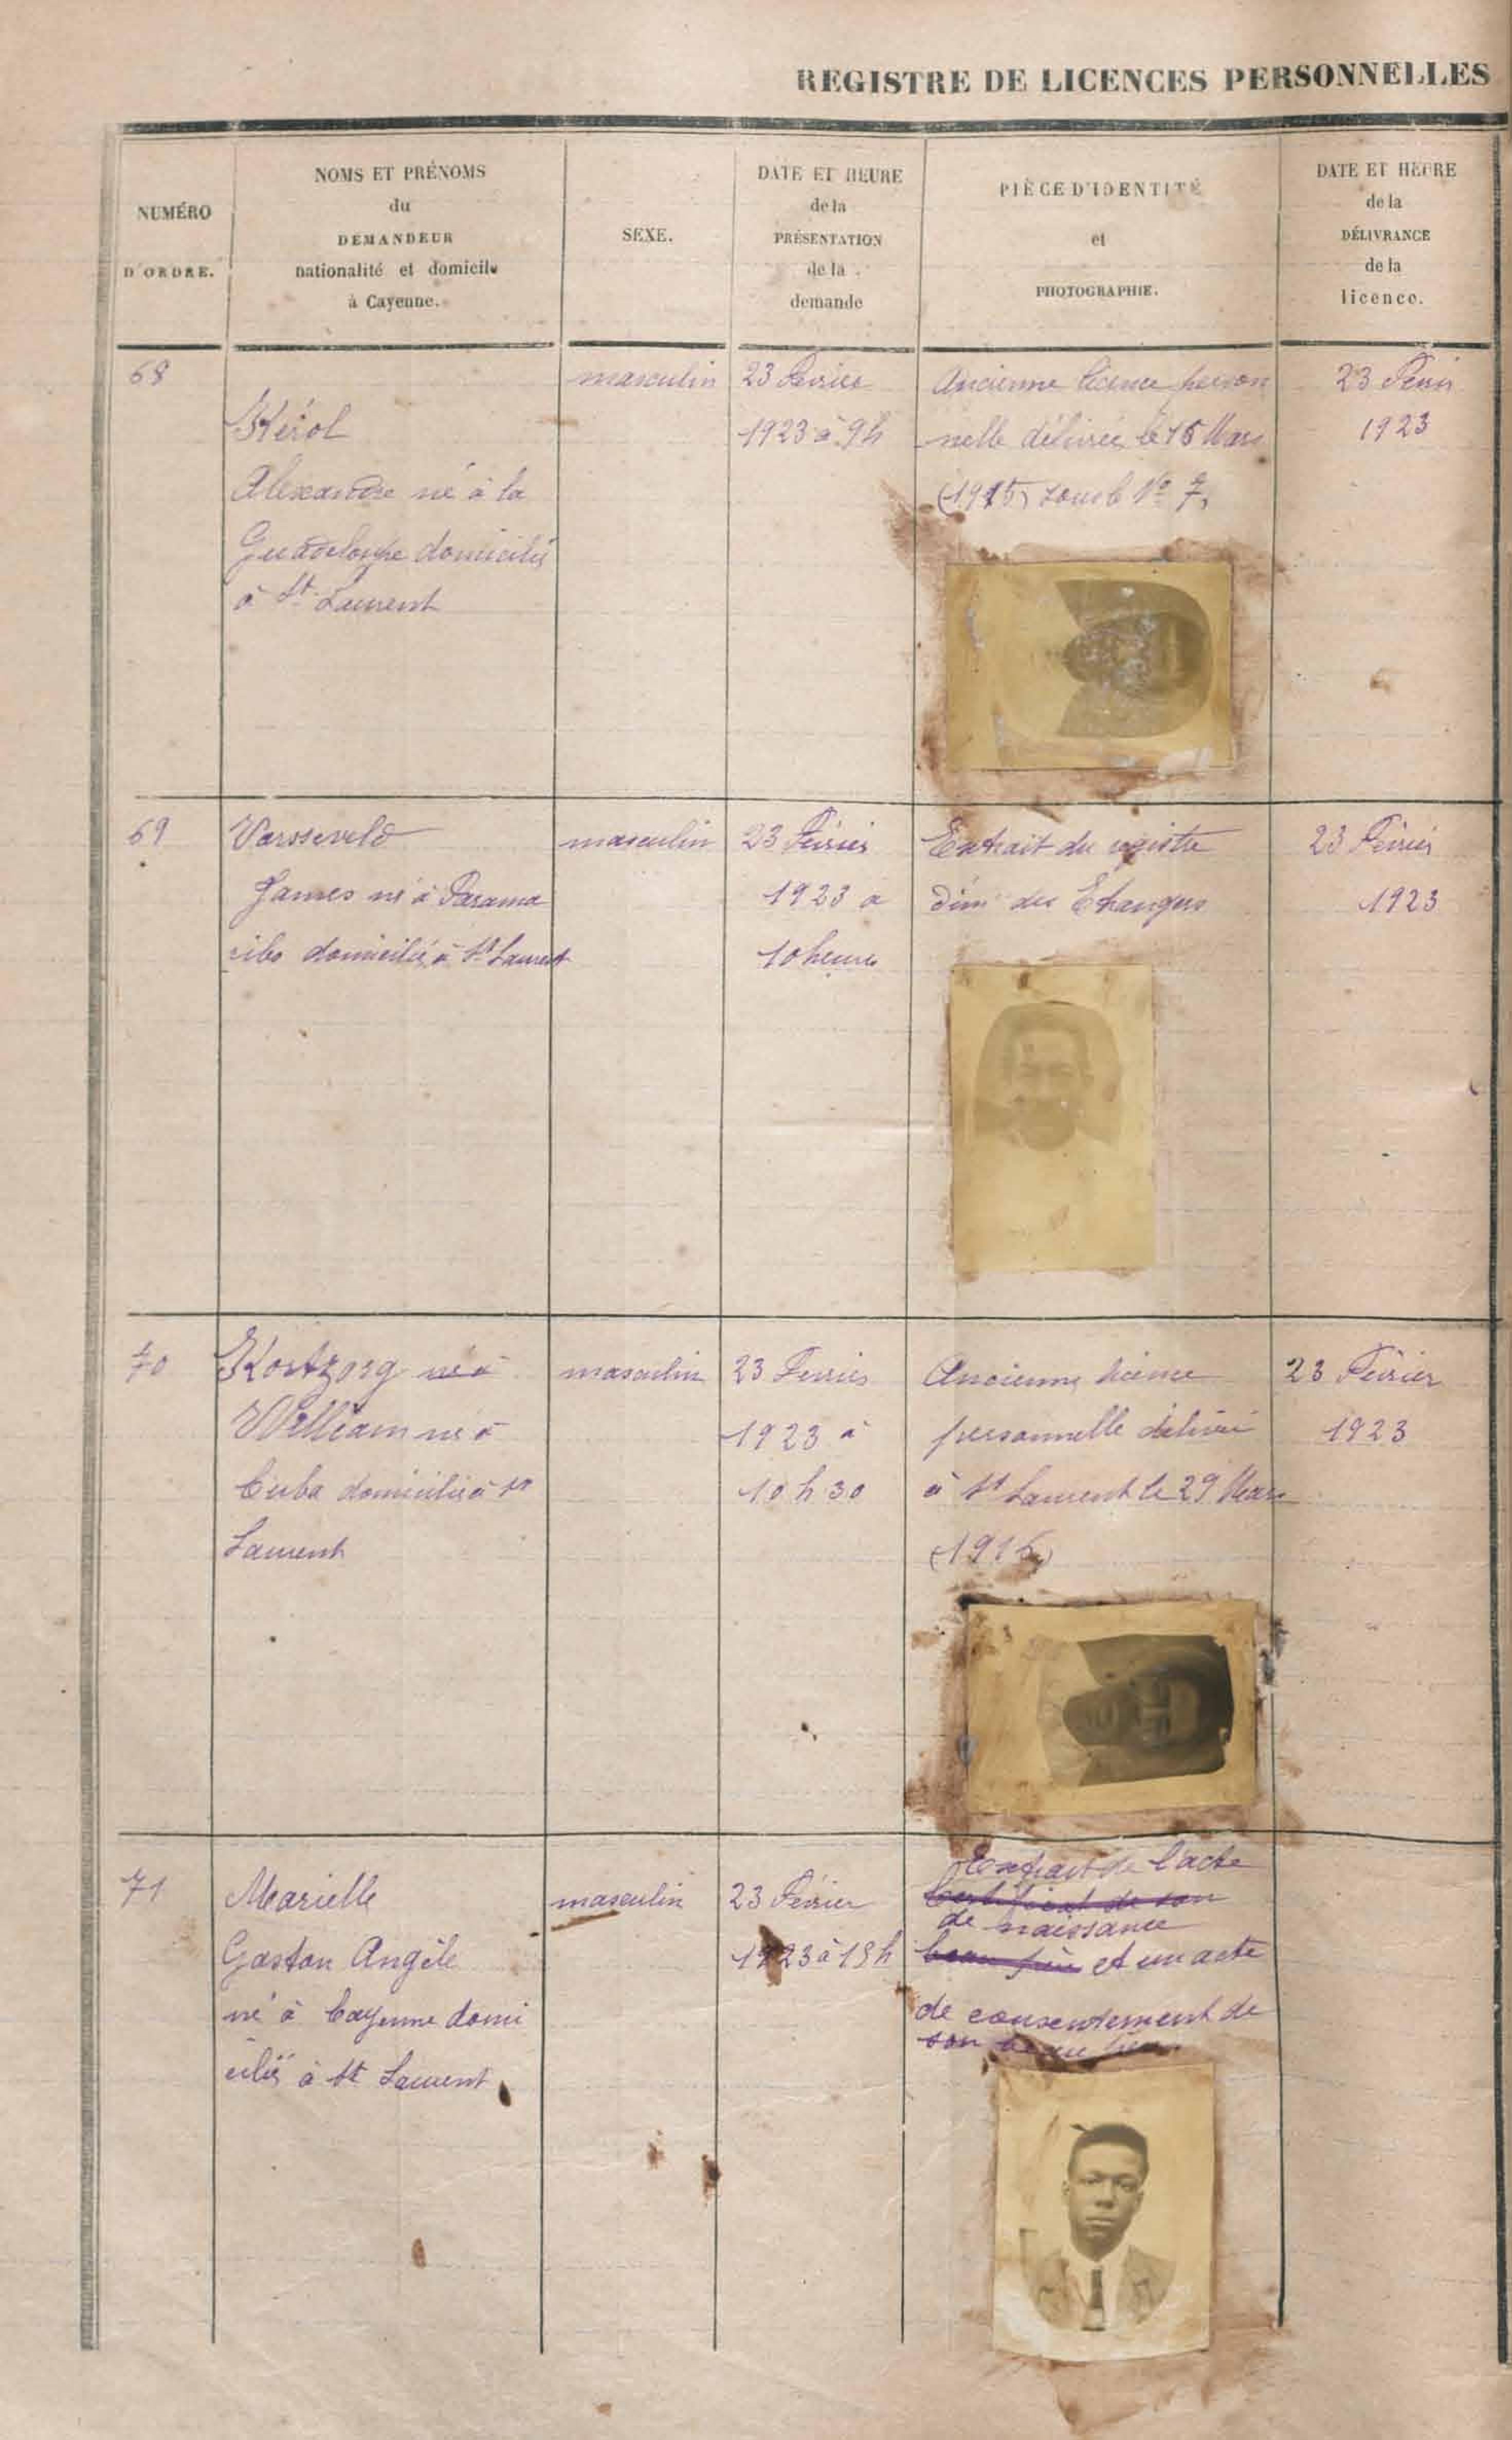 REGISTRE DE LICENCES PERSONNELLES
NUMÉRO
D'ORDRE.
NOMS ET PRÉNOMS
du
DEMANDEUR
nationalité et domicile
à Cayenne.
SEXE.
DATE ET HEURE
de la
PRÉSENTATION
de la
demande
PIÈCE D'IDENTITÉ
et
PHOTOGRAPHIE.
DATE ET HEURE
de la
DÉLIVRANCE
de la
licence.
68
Kérol
Alexandre né à la
Guadeloupe domicilié
à St Laurent
masculin
23 Février
1923 à 9h
Ancienne licence person
nelle délivrée le 15 Mars
(1915) sous le No 7,
23 Févrir
1923
69
Varsseveld
James né à Parama
ribo domicilié à St Laurent
masculin
23 Février
1923 à
10 heures
Extrait du registre
d'im des Etrangers
23 Février
1923
70
Kortzorg né à
William né à
Cuba domicilié à St
Laurent
masculin
23 Février
1923 à
10 h 30
Ancienne licence
personnelle délivrée
à St Laurent le 29 Mars
23 Février
1923
71
Marielle
Gaston Angèle
né à Cayenne domi
cilié à St Laurent
masculin
23 Février
1923 à 15h
Extrait de l'acte
Certificat de son
de naissance
beau père et un acte
de consentement de
son beau père